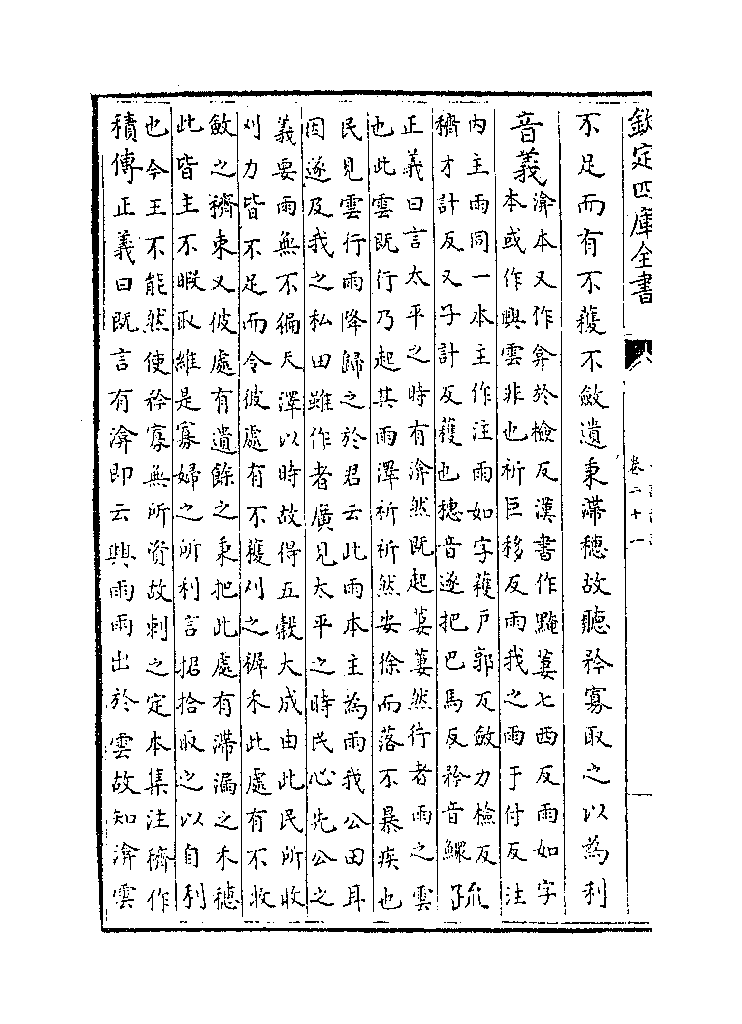 欽定四庫全書
卷二十一
不足而有不穫不斂遺秉滯穗故聽矜寡取之以為利
音義
渰本又作弇於檢反漢書作黤萋七西反雨如字
本或作興雲非也祈巨移反雨我之雨于付反注
内主雨同一本主作注雨如字穫戶郭反斂力檢反
穧才計反又子計反穫也穗音遂把巴馬反矜音鰥
疏
正義曰言太平之時有渰然既起萋萋然行者雨之雲
也此雲既行乃起其雨澤祈祈然安徐而落不暴疾也
民見雲行雨降歸之於君云此雨本主為雨我公田耳
因遂及我之私田雖作者廣見太平之時民心先公之
義要雨無不徧天澤以時故得五穀大成由此民所收
刈力皆不足而令彼處有不穫刈之穉禾此處有不收
斂之穧束又彼處有遺餘之秉把此處有滯漏之禾穗
此皆主不暇取維是寡婦之所利言捃拾取之以自利
也今王不能然使矜寡無所資故刺之定本集注穧作
積傳正義曰既言有渰即云興雨雨出於雲故知渰雲